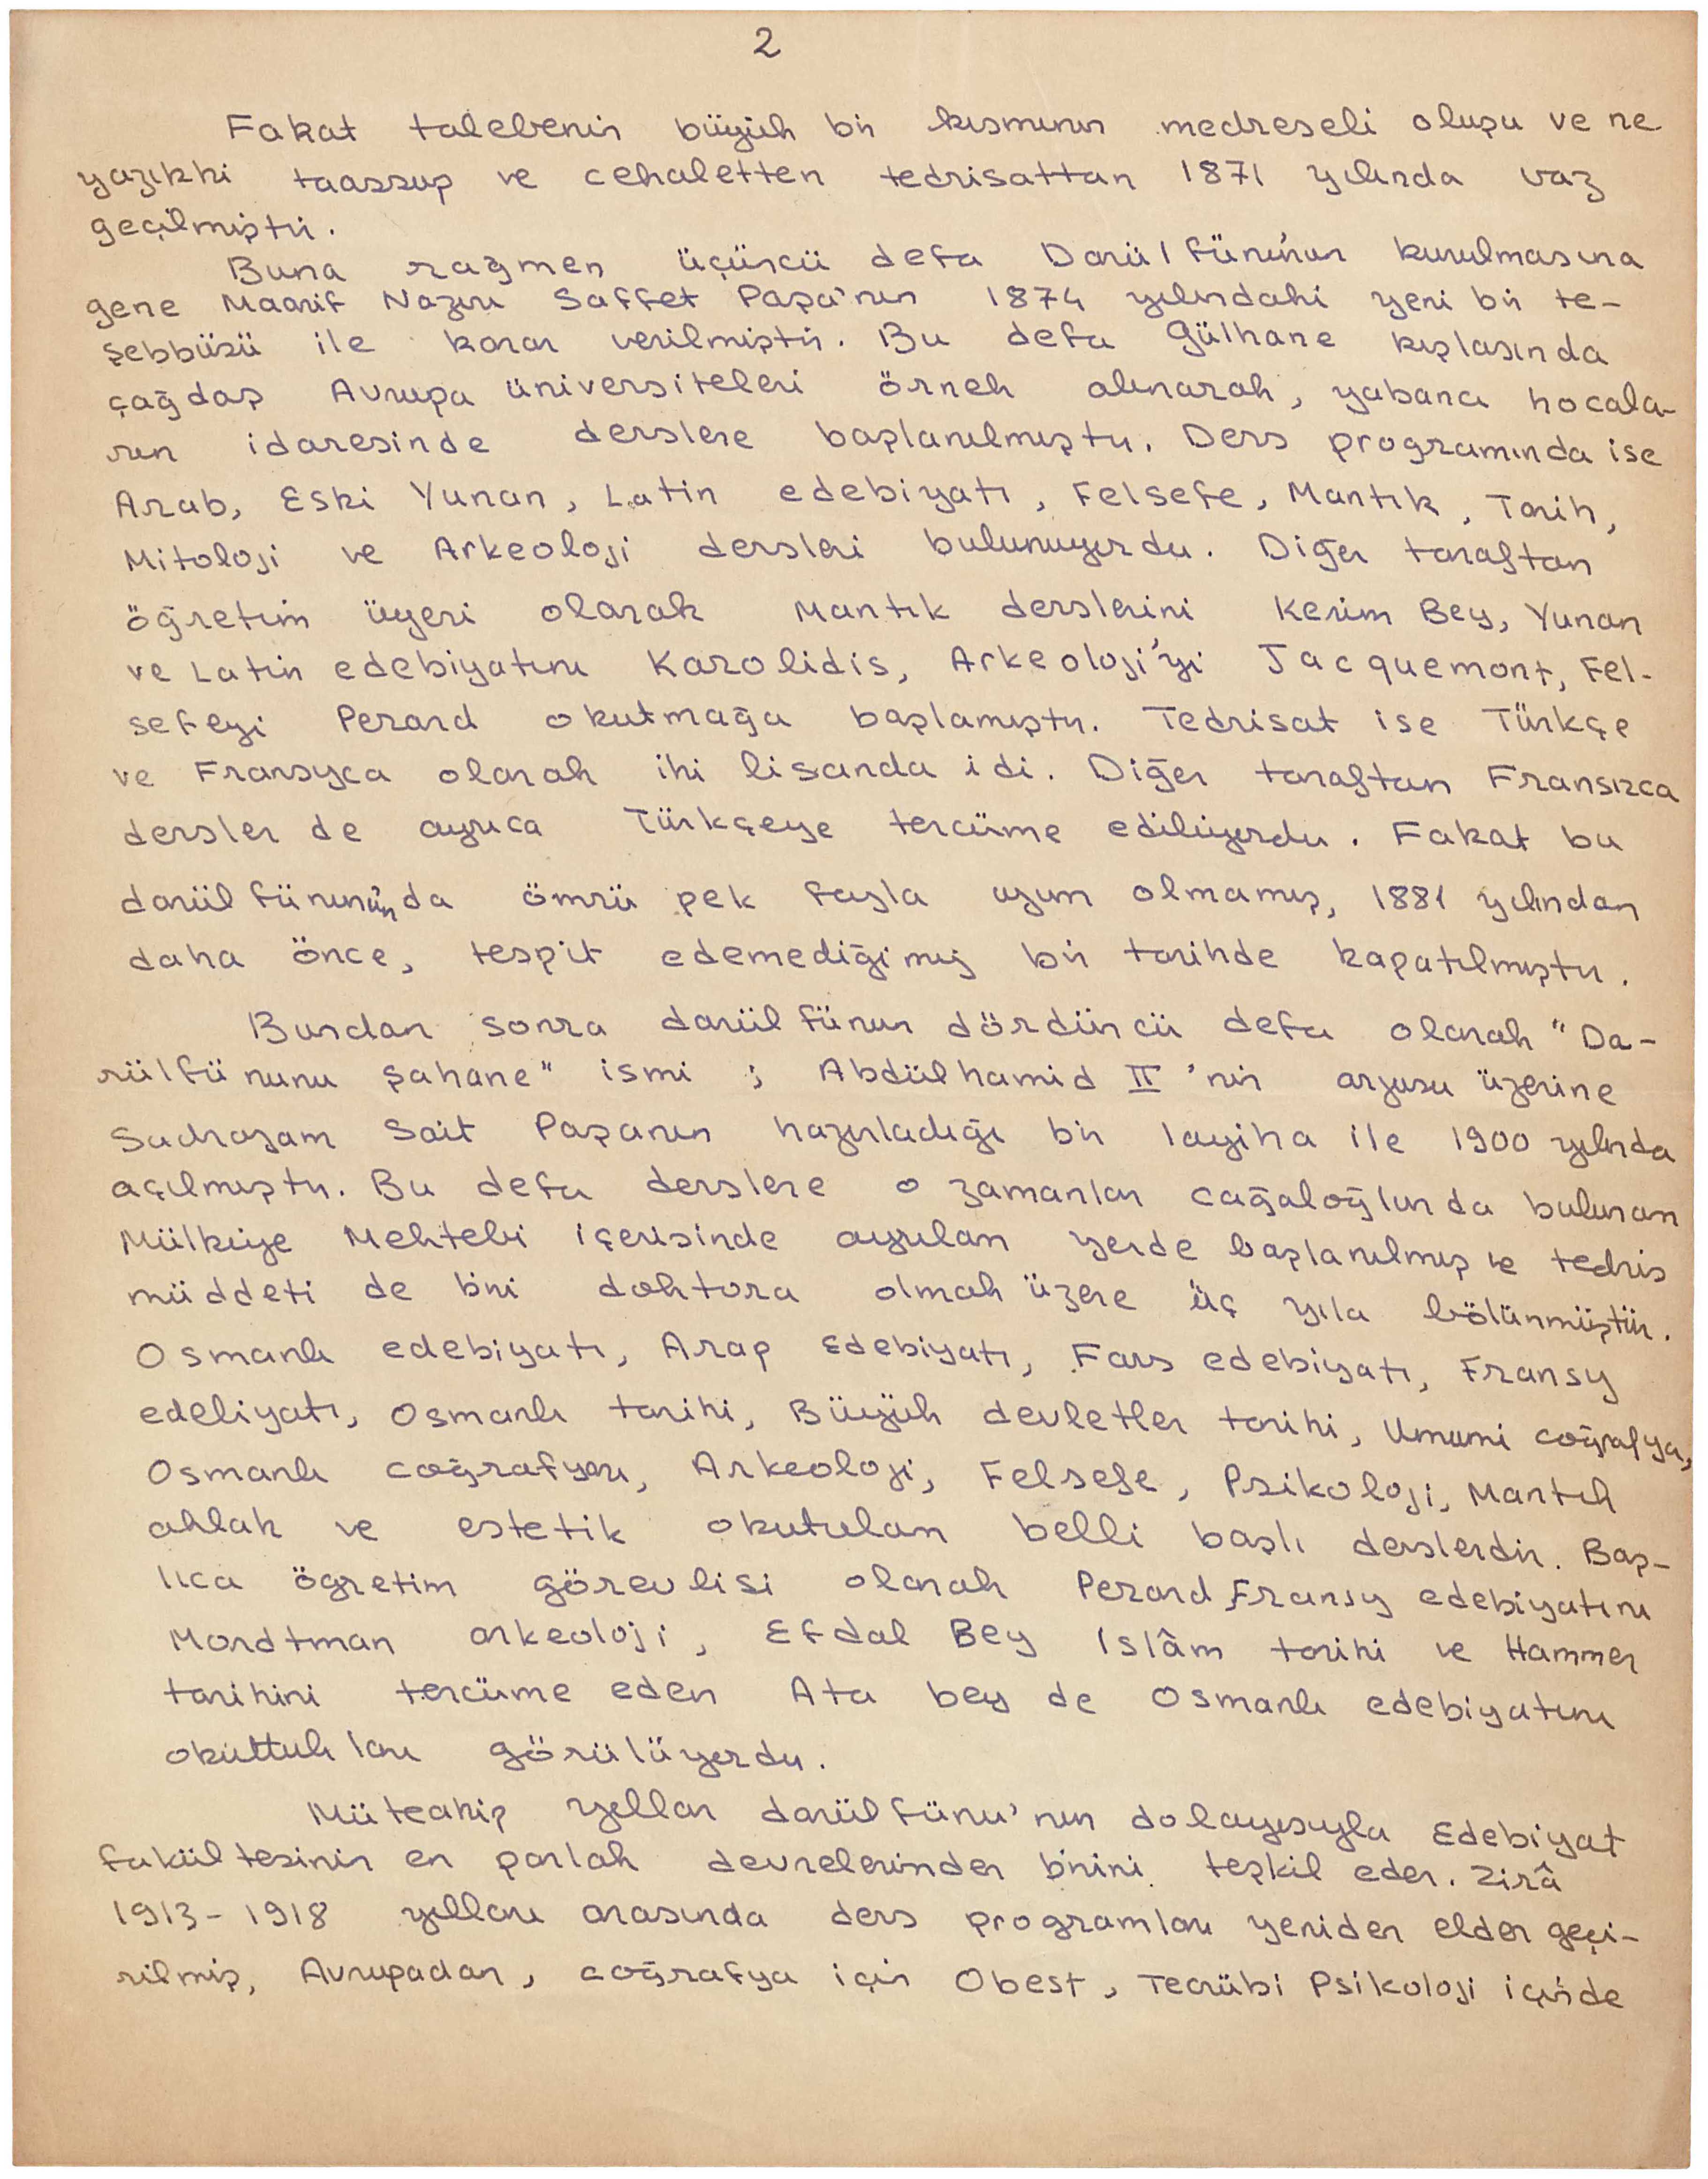 2
Fakat talebenin büyük bir kısmının medreseli oluşu ve ne
yazıkki taassup ve cehaletten tedrisattan 1871 yılında vaz
geçilmiştir.
Buna rağmen üçüncü defa Darülfünun'un kurulmasına
gene Maarif Nazırı Saffet Paşa'nın 1874 yılındaki yeni bir te-
şebbüsü ile karar verilmiştir. Bu defa Gülhane kışlasında
çağdaş Avrupa üniversiteleri örnek alınarak, yabancı hocala-
rın idaresinde derslere başlanılmıştır. Ders programında ise
Arab, Eski Yunan, Latin edebiyatı, Felsefe, Mantık, Tarih,
Mitoloji ve Arkeoloji dersleri bulunuyordu. Diğer taraftan
öğretim üyesi olarak Mantık derslerini Kerim Bey, Yunan
ve Latin edebiyatını Karolidis, Arkeoloji'yi Jacquemont, Fel-
sefeyi Perard okutmağa başlamıştır. Tedrisat ise Türkçe
ve Fransızca olarak iki lisanda idi. Diğer taraftan Fransızca
dersler de ayrıca Türkçeye tercüme ediliyordu. Fakat bu
darülfünunu'n da ömrü pek fazla uzun olmamış, 1881 yılından
daha önce, tespit edemediğimiz bir tarihde kapatılmıştır.
Bundan sonra darülfünun dördüncü defa olarak "Da-
rülfünunu Şahane" ismi ; Abdülhamid II 'nin arzusu üzerine
Sadrazam Sait Paşanın hazırladığı bir layiha ile 1900 yılında
açılmıştır. Bu defa derslere o zamanlar cağaloğlunda bulunan
Mülkiye Mektebi içerisinde ayrılan yerde başlanılmış ve tedris
müddeti de biri doktora olmak üzere üç yıla bölünmüştür.
Osmanlı edebiyatı, Arap Edebiyatı, Fars edebiyatı, Fransız
edebiyatı, Osmanlı tarihi, Büyük devletler tarihi, Umumi coğrafya,
Osmanlı coğrafyası, Arkeoloji, Felsefe, Psikoloji, Mantık
ahlak ve estetik okutulan belli başlı derslerdir. Baş-
lıca ögretim görevlisi olarak Perard Fransız edebiyatını
Mordtman arkeoloji, Efdal Bey İslâm tarihi ve Hammer
tarihini tercüme eden Ata bey de Osmanlı edebiyatını
okuttukları görülüyordu.
Müteakip yıllar darülfünu'nun dolayısıyla Edebiyat
fakültesinin en parlak devrelerinden birini teşkil eder. Zirâ
1913-1918 yılları arasında ders programları yeniden elden geçi-
rilmiş, Avrupadan, coğrafya için Obest, Tecrübi Psikoloji için'de